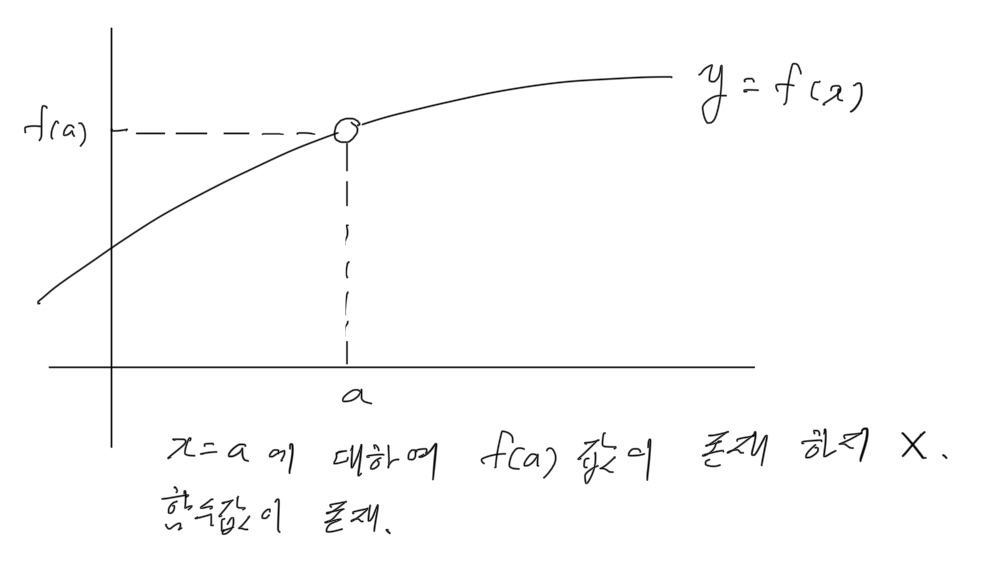 y = f(x)
f(a)
a
x=a 에 대하여 f(a) 값이 존재 하지 X.
함수값이 존재.